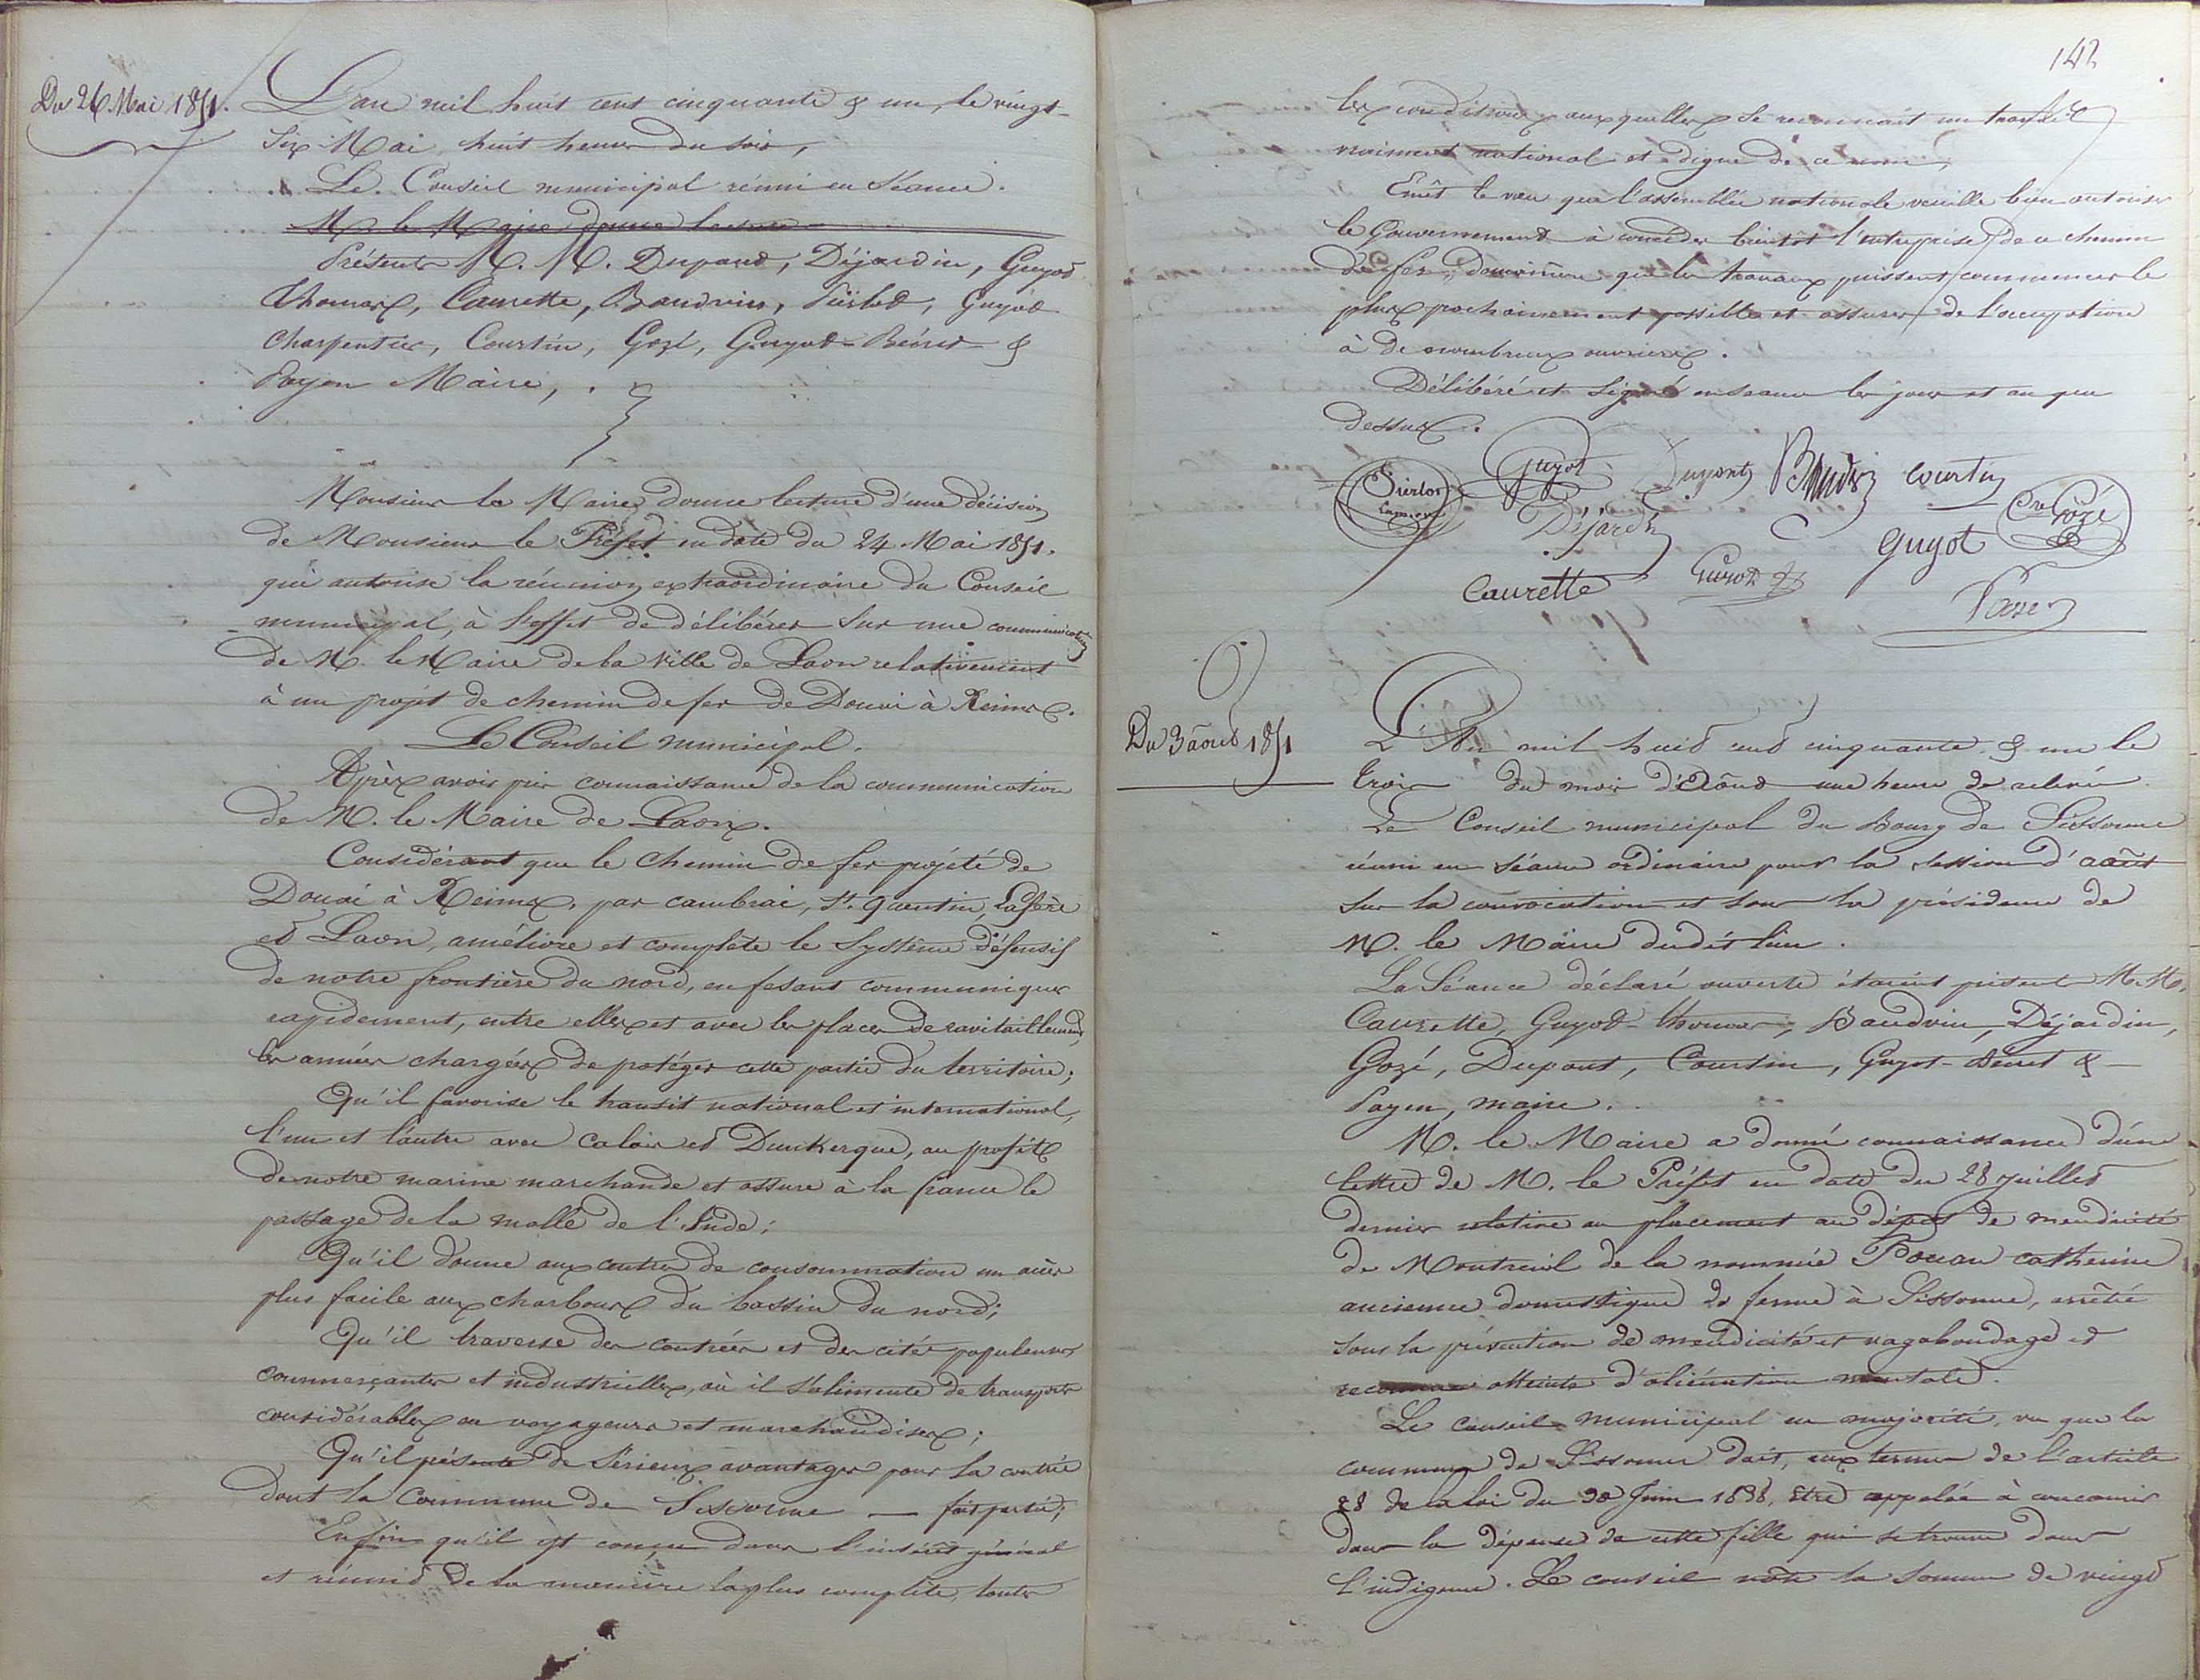 Du 26 Mai 1851.
L'an mil huit cent cinquante & un, le vingt-
six Mai, huit heures du soir,
Le Conseil municipal réuni en Séance.
M. le Maire donne lecture
Présents M. M. Dupont, Déjardin, Guyot
Thomas, Caurette, Baudvin, Guyot
Charpentier, Courtin, Gozé, Guyot-Bénet &
Payen Maire,
Monsieur le Maire donne lecture d'une décision
de Monsieur le Préfet en date du 24 Mai 1851.
qui autorise la réunion extraordinaire du Conseil
municipal, à l'effet de délibérer sur une communication
de M. le Maire de la Ville de Laon relativement
à un projet de chemin de fer de Douai à Reims.
Le Conseil municipal.
Après avoir pris connaissance de la communication
de M. le Maire de Laon.
Considérant que le chemin de fer projété de
Douai à Reims, par cambrai, St. quentin, Lafère
et Laon, améliore et complète le Système défensif
de notre frontière du nord, en fesant communiquer
rapidement, entre elles et avec les places de ravitaillement,
les armées chargées de protéger cette partie du territoire;
Qu'il favorise le transit national et international,
l'un et l'autre avec Calais et Dunkerque, au profit
de notre marine marchande et assure à la france le
passage de la malle de l'Inde;
Qu'il donne aux centres de consommation un accès
plus facile aux charbons du bassin du nord;
Qu'il traverse des contrées et des cités populeuses
commerçantes et industrielles, où il s'alimente de transports
considérables en voyageurs et marchandises;
Qu'il présente de Sérieux avantages pour la contrée
dont la Commune de Sissonne — fait partie;
Enfin qu'il est conçu dans l'intérêt général
et réunit de la manière la plus complète, toutes
142
les conditions auxquelles se reconnait un travail
vraiment national et digne de ce nom,
Emêt le vœu que l'assemblée nationale veuille bien autoriser
le Gouvernement à concéder bientôt l'entreprise de ce chemin
de fer, de manière que les travaux puissent commencer le
plus prochainement possible et assurer de l'occupation
à de nombreux ouvriers.
Délibéré et Signé en séance les jour et an que
dessus.
Guyot Dupont Baudvin Courtin
Déjardin Guyot Gozé
Caurette Guyot
Payen
Du 3 août 1851
L'An mil huit cent cinquante & un le
trois du mois d'Août une heure de relevée
Le Conseil municipal du Bourg de Sissonne
réuni en séance ordinaire pour la session d'août
sur la convocation et sous la présidence de
M. le Maire dudit lieu.
La Séance déclaré ouverte étaient présent M. M.
Caurette, Guyot-thomas, Baudvin, Déjardin,
Gozé, Dupont, Courtin, Guyot-Bénet &
Payen, maire.
M. le Maire a donné connaissance d'une
lettre de M. le Préfet en date du 28 juillet
dernier relative au placement au dépot de mendicité
de Montreuil de la nommée catherine
ancienne domestique de ferme à Sissonne, arrêtée
sous la prévention de mendicité et vagabondage et
reconnue atteinte d'aliénation mentale.
Le Conseil municipal en majorité, vu que la
commune de Sissonne doit, aux termes de l'article
28 de la loi du 30 Juin 1838, être appelée à concourir
dans la dépense de cette fille qui se trouve dans
l'indigence. Le conseil vote la somme de vingt